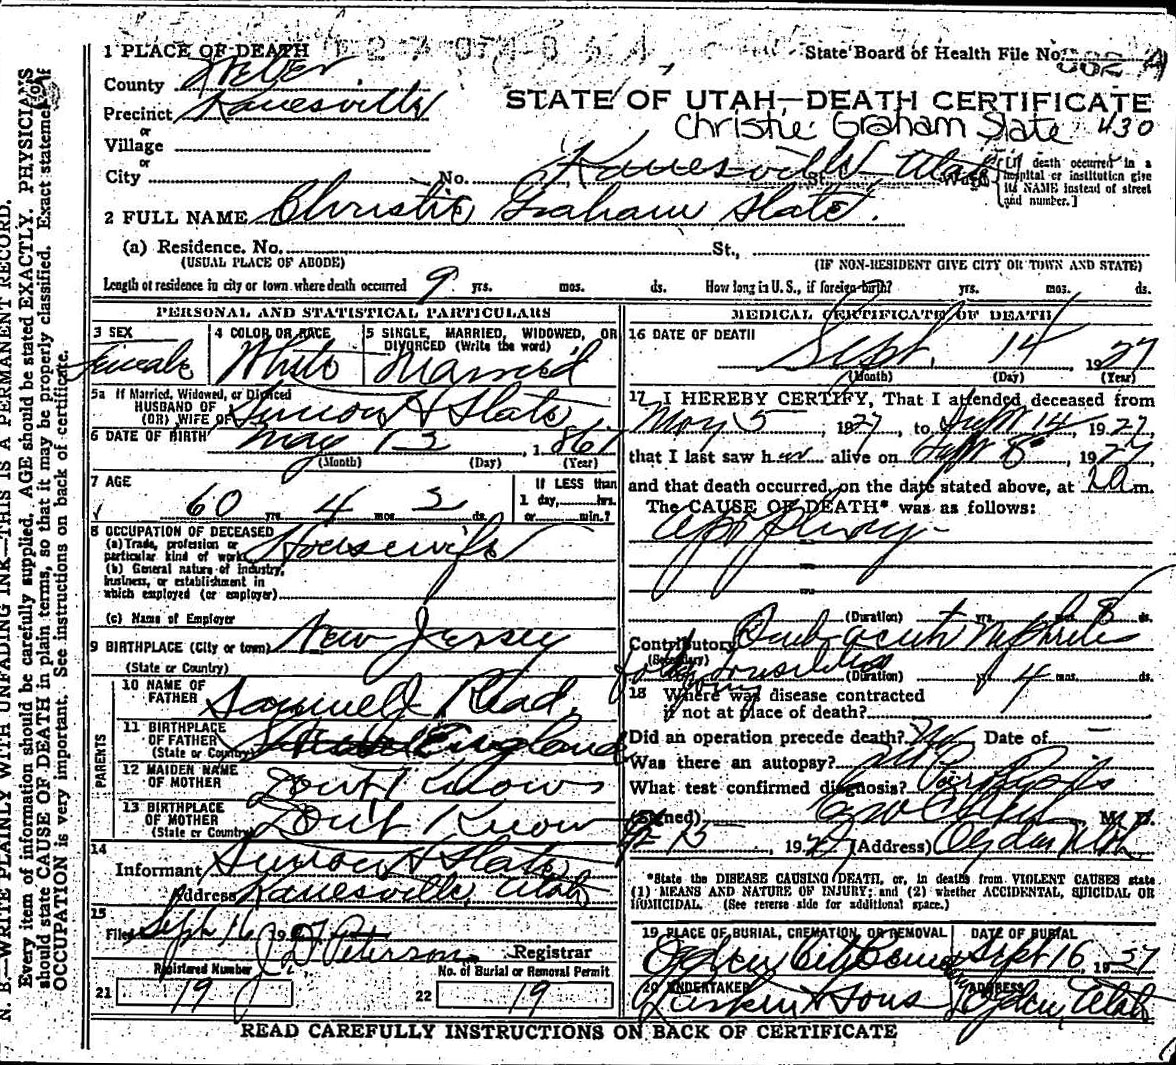 1 PLACE OF DEATH
State Board of Health File No.
County Weber
Precinct Kanesville
STATE OF UTAH—DEATH CERTIFICATE
Christie Graham Slate 430
or
Village
or
City No. Kanesville, Utah St. Ward
[If death occurred in a hospital or institution give its NAME instead of street and number.]
2 FULL NAME Christie Graham Slate.
(a) Residence. No. St.,
(USUAL PLACE OF ABODE) (IF NON-RESIDENT GIVE CITY OR TOWN AND STATE)
Length of residence in city or town where death occurred 9 yrs. mos. ds. How long in U.S., if foreign birth? yrs. mos. ds.
PERSONAL AND STATISTICAL PARTICULARS
3 SEX Female
4 COLOR OR RACE White
5 SINGLE, MARRIED, WIDOWED, OR DIVORCED (Write the word) Married
5a If Married, Widowed, or Divorced
HUSBAND OF
(OR) WIFE OF Simon H Slate
6 DATE OF BIRTH May 13, 1867
(Month) (Day) (Year)
7 AGE 60 yrs. 4 mos. 2 ds.
If LESS than 1 day, hrs. or min.?
8 OCCUPATION OF DECEASED
(a) Trade, profession or particular kind of work Housewife
(b) General nature of industry, business, or establishment in which employed (or employer)
(c) Name of Employer
9 BIRTHPLACE (City or town) New Jersey
(State or Country)
PARENTS
10 NAME OF FATHER Samuel J. Read.
11 BIRTHPLACE OF FATHER England
(State or Country)
12 MAIDEN NAME OF MOTHER Don't Know
13 BIRTHPLACE OF MOTHER Don't Know
(State or Country)
14
Informant Simon H Slate
Address Kanesville, Utah
15
Filed Sept 16, 1927 J. D. Peterson Registrar
Registered Number No. of Burial or Removal Permit
21 19 22 19
MEDICAL CERTIFICATE OF DEATH
16 DATE OF DEATH
Sept. 14 1927
(Month) (Day) (Year)
17 I HEREBY CERTIFY, That I attended deceased from
May 5, 1927, to Sept 14, 1927
that I last saw her alive on Sept 8, 1927
and that death occurred, on the date stated above, at m.
The CAUSE OF DEATH* was as follows:
Apoplexy
(Duration) yrs. mos. 8 ds.
Contributory Sub acute Nephritis
(Secondary)
(Duration) yrs. 4 mos. ds.
18 Where was disease contracted
if not at place of death?
Did an operation precede death? No Date of
Was there an autopsy? No
What test confirmed diagnosis?
(Signed) M. D.
15, 1927 (Address) Ogden Utah
*State the DISEASE CAUSING DEATH, or, in deaths from VIOLENT CAUSES state
(1) MEANS AND NATURE OF INJURY; and (2) whether ACCIDENTAL, SUICIDAL OR
HOMICIDAL. (See reverse side for additional space.)
19 PLACE OF BURIAL, CREMATION, OR REMOVAL DATE OF BURIAL
Ogden City Cem Sept 16, 1927
20 UNDERTAKER ADDRESS
Larkin & Sons Ogden, Utah
READ CAREFULLY INSTRUCTIONS ON BACK OF CERTIFICATE
N. B.—WRITE PLAINLY WITH UNFADING INK—THIS IS A PERMANENT RECORD.
Every item of information should be carefully supplied. AGE should be stated EXACTLY. PHYSICIANS
should state CAUSE OF DEATH in plain terms, so that it may be properly classified. Exact statement of
OCCUPATION is very important. See instructions on back of certificate.